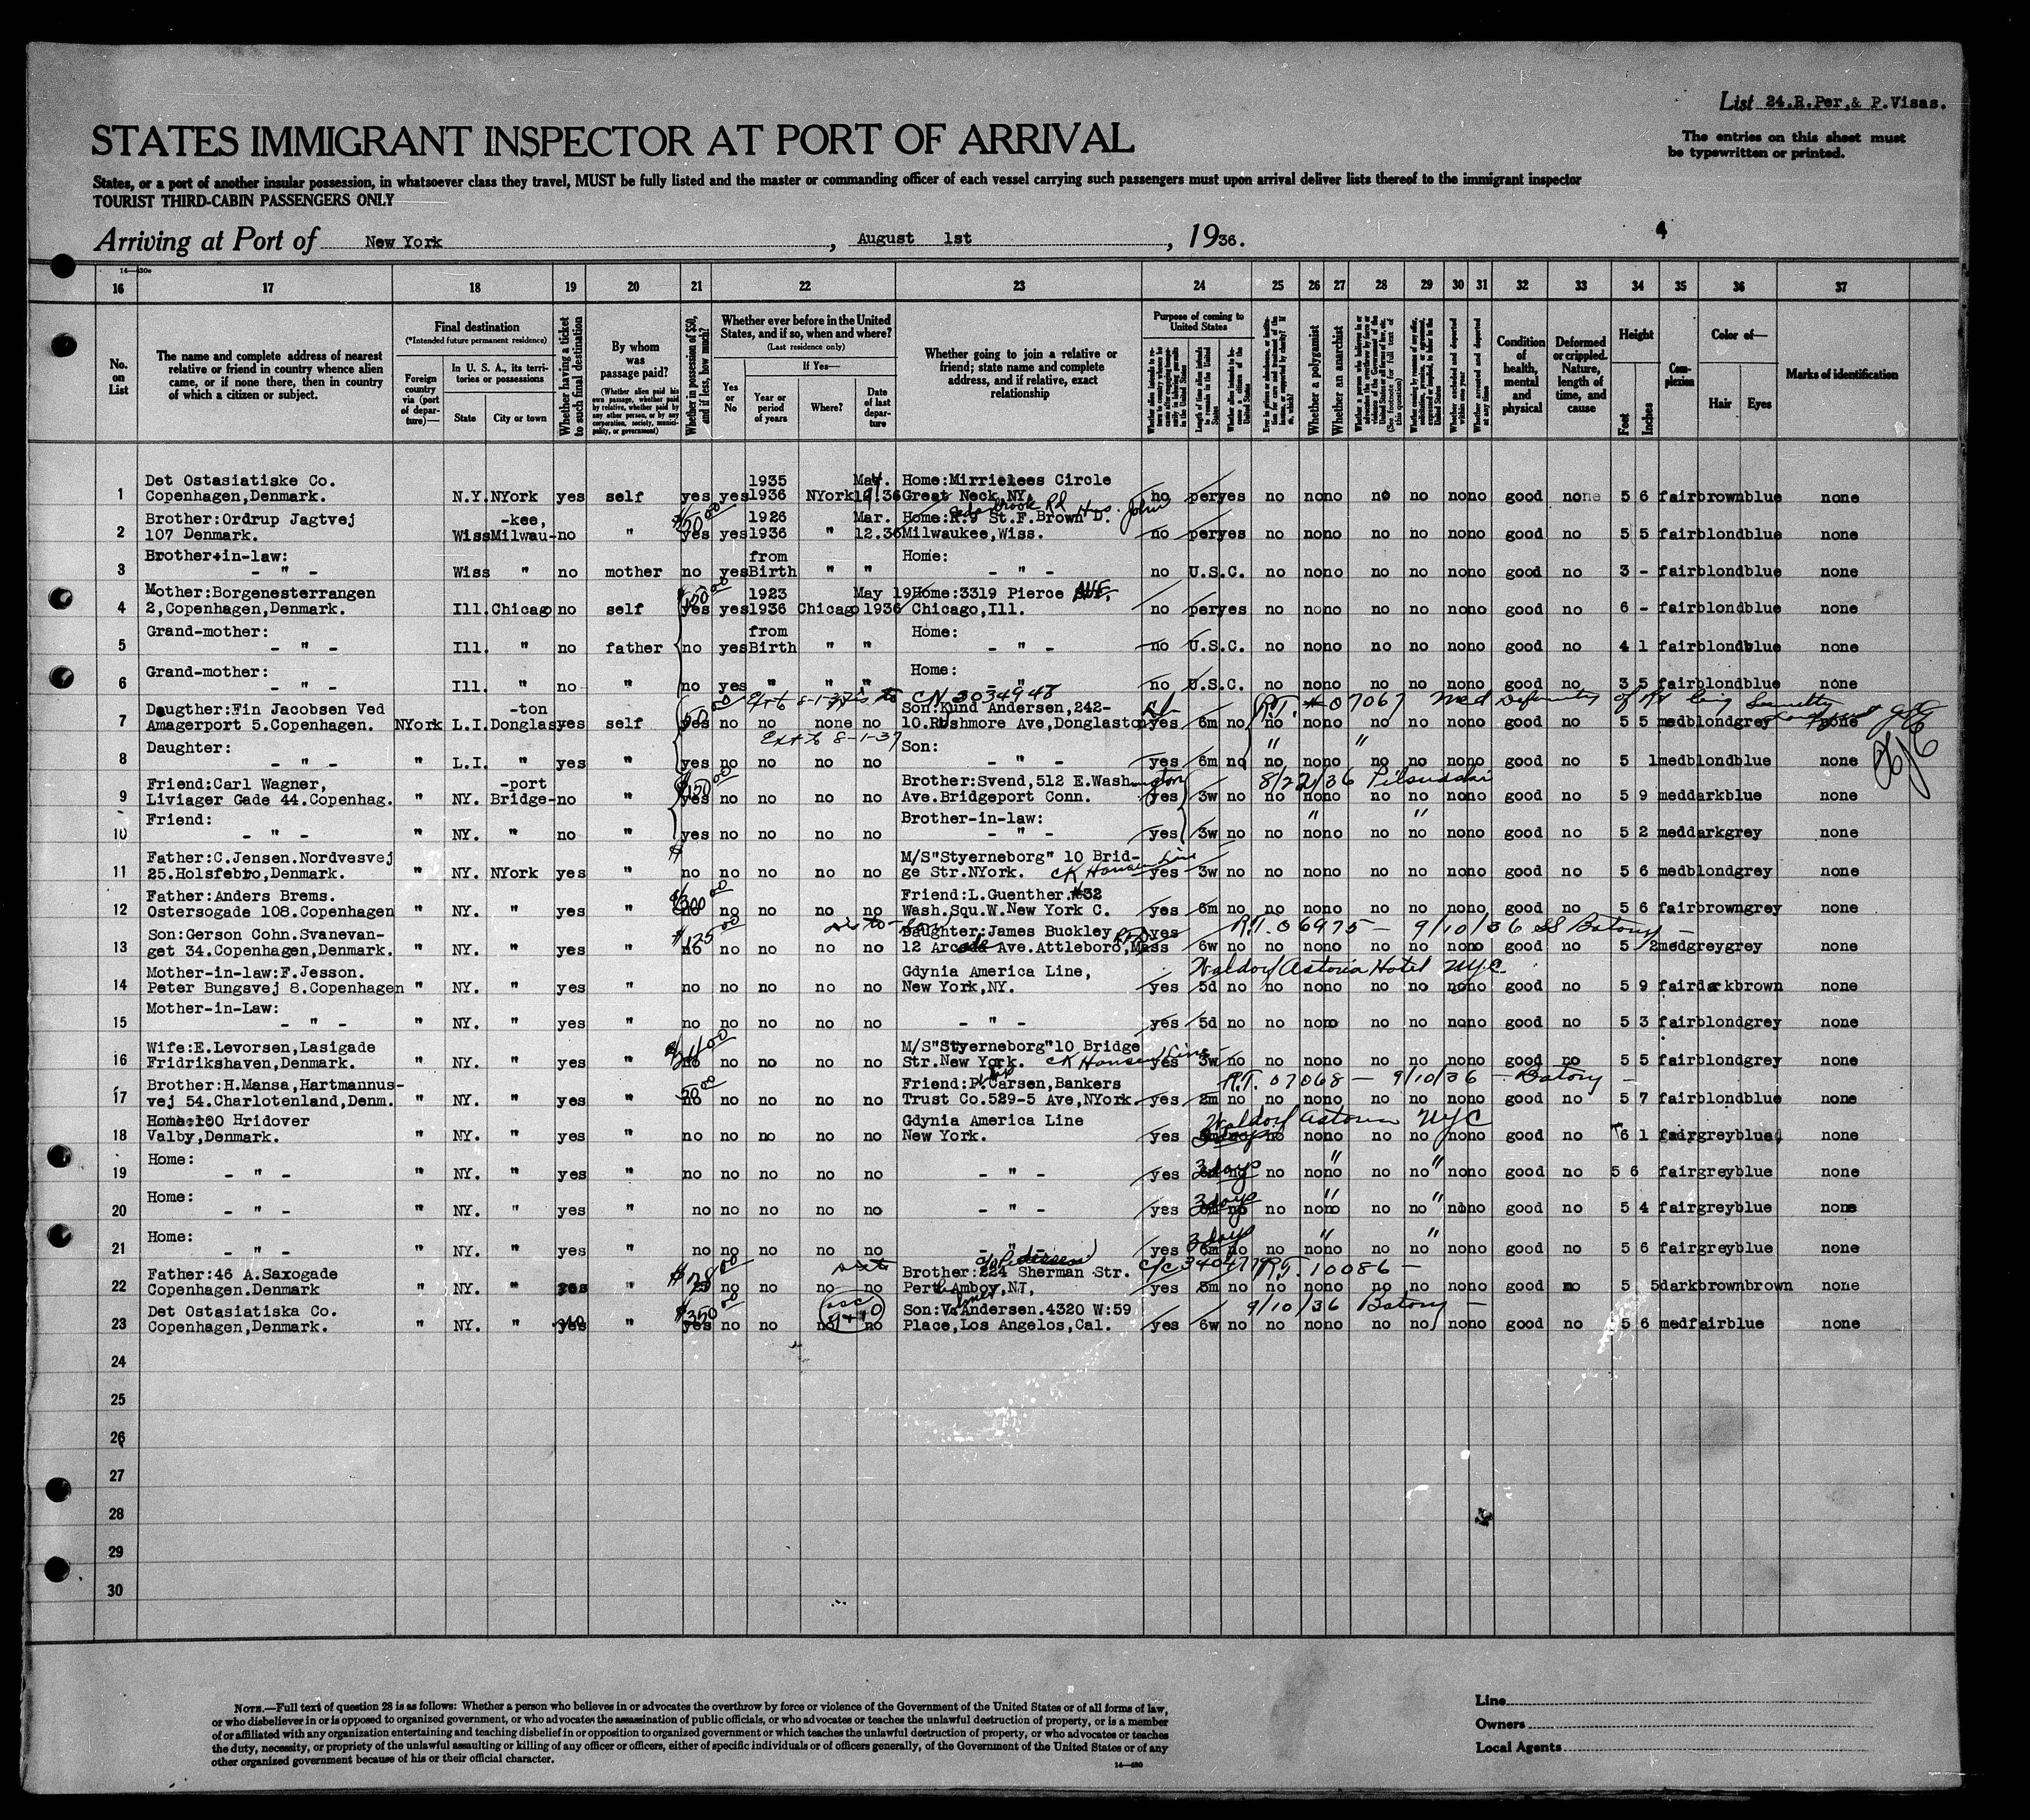 List 24.R.Per.& P.Visas.
STATES IMMIGRANT INSPECTOR AT PORT OF ARRIVAL
The entries on this sheet must
be typewritten or printed.
States, or a port of another insular possession, in whatsoever class they travel, MUST be fully listed and the master or commanding officer of each vessel carrying such passengers must upon arrival deliver lists thereof to the immigrant inspector
TOURIST THIRD-CABIN PASSENGERS ONLY
Arriving at Port of New York, August 1st, 1936.
16 17 18 19 20 21 22 23 24 25 26 27 28 29 30 31 32 33 34 35 36 37
No. on List
The name and complete address of nearest relative or friend in country whence alien came, or if none there, then in country of which a citizen or subject.
Final destination
(*Intended future permanent residence)
Foreign country via (port of departure)—
In U. S. A., its territories or possessions
State
City or town
Whether having a ticket to such final destination
By whom was passage paid?
(Whether alien paid his own passage, whether paid by relative, whether paid by any other person, or by any corporation, society, municipality, or government)
Whether in possession of $50, and if less, how much?
Whether ever before in the United States, and if so, when and where?
(Last residence only)
Yes or No
If Yes—
Year or period of years
Where?
Date of last departure
Whether going to join a relative or friend; state name and complete address, and if relative, exact relationship
Purpose of coming to United States
Whether a polygamist
Whether an anarchist
Condition of health, mental and physical
Deformed or crippled. Nature, length of time, and cause
Height
Feet
Inches
Complexion
Color of—
Hair
Eyes
Marks of identification
1935 Mar. Home:Mirrielees Circle
1 Det Ostasiatiske Co. Copenhagen,Denmark. N.Y. NYork yes self yes yes 1936 NYork Great Neck,NY. no per yes no no no no no no no good none 5 6 fair brown blue none
2 Brother:Ordrup Jagtvej 107 Denmark. Wiss Milwau-kee, no " yes yes 1926 1936 " Mar. 12.36 Milwaukee,Wiss. no per yes no no no no no no no good no 5 5 fair blond blue none
3 Brother-in-law: - " - Wiss " no mother no yes from Birth " " Home: - " - no U.S.C. no no no no no no no good no 3 - fair blond blue none
4 Mother:Borgenesterrangen 2,Copenhagen,Denmark. Ill. Chicago no self yes yes 1923 1936 Chicago May 1936 Home:3319 Pierce AVE. Chicago,Ill. no per yes no no no no no no no good no 6 - fair blond blue none
5 Grand-mother: - " - Ill. " no father no yes from Birth " " Home: - " - no U.S.C. no no no no no no no good no 4 1 fair blond blue none
6 Grand-mother: - " - Ill. " no " no yes " " " Home: no U.S.C. no no no no no no no good no 3 5 fair blond blue none
7 Daugther:Fin Jacobsen Ved Amagerport 5.Copenhagen. NYork L.I. Donglas-ton yes self yes no no none no Son:Kund Andersen,242-10.Rushmore Ave,Donglaston yes 6m no no no no no no no no good no 5 5 med blond grey none
8 Daughter: - " - " L.I. " yes " yes no no no no Son: - " - yes 6m no no no no no no no no good no 5 1 med blond blue none
9 Friend:Carl Wagner, Liviager Gade 44.Copenhag. " NY. Bridge-port no " yes no no no no Brother:Svend,512 E.Washington Ave.Bridgeport Conn. yes 3w no no no no no no no no good no 5 9 med dark blue none
8/22/36 Pilsudski
10 Friend: - " - " NY. " no " yes no no no no Brother-in-law: - " - yes 3w no no no no no no no no good no 5 2 med dark grey none
11 Father:C.Jensen.Nordvesvej 25.Holsfebro,Denmark. " NY. NYork yes " no no no no no M/S"Styerneborg" 10 Bridge Str.NYork. yes 3w no no no no no no no no good no 5 6 med blond grey none
12 Father:Anders Brems. Ostersogade 108.Copenhagen " NY. " yes " $300.00 no no no no Friend:L.Guenther.#32 Wash.Squ.W.New York C. yes 6m no no no no no no no no good no 5 6 fair brown grey none
R.T. 06975 — 9/10/36 SS Batory —
13 Son:Gerson Cohn.Svanevan-get 34.Copenhagen,Denmark. " NY. " yes " $125.00 no no no no no Daughter:James Buckley 12 Arcade Ave.Attleboro,Mass yes 6w no no no no no no no no good no 5 2 med grey grey none
Waldorf Astoria Hotel NYC.
14 Mother-in-law:F.Jesson. Peter Bungsvej 8.Copenhagen " NY. " yes " no no no no no Gdynia America Line, New York,NY. yes 5d no no no no no no no no good no 5 9 fair dark brown none
15 Mother-in-Law: - " - " NY. " yes " no no no no no - " - yes 5d no no no no no no no no good no 5 3 fair blond grey none
16 Wife:E.Levorsen,Lasigade Fridrikshaven,Denmark. " NY. " yes " no no no no no M/S"Styerneborg"10 Bridge Str.New York. yes 3w no no no no no no no no good no 5 5 fair blond grey none
R.T. 07068 — 9/10/36 — Batory —
17 Brother:H.Mansa,Hartmannus-vej 54.Charlotenland,Denm. " NY. " yes " 50.00 no no no no no Friend:P.Carsen,Bankers Trust Co.529-5 Ave,NYork. yes 2m no no no no no no no no good no 5 7 fair blond blue none
Waldorf Astoria NYC
18 Home:100 Hridover Valby,Denmark. " NY. " yes " no no no no no Gdynia America Line New York. yes no no no no no no no good no 6 1 fair grey blue none
19 Home: - " - " NY. " yes " no no no no no - " - yes 3 days no no no no no no no good no 5 6 fair grey blue none
20 Home: - " - " NY. " yes " no no no no no - " - yes 3 days no no no no no no no no good no 5 4 fair grey blue none
21 Home: - " - " NY. " yes " no no no no no - " - yes 3 days 6m no no no no no no no no good no 5 6 fair grey blue none
R.T. 10086 —
22 Father:46 A.Saxogade Copenhagen.Denmark " NY. " yes " $28.00 no no no no Brother:224 Sherman Str. Perth Amboy,NJ, yes no no no no no no no no good no 5 5 dark brown brown none
9/10/36 Batory —
23 Det Ostasiatiska Co. Copenhagen,Denmark. " NY. " " $350.00 yes no no no no Son:V.Andersen.4320 W:59 Place,Los Angelos,Cal. yes 6w no no no no no no no no good no 5 6 med fair blue none
24
25
26
27
28
29
30
NOTE.—Full text of question 28 is as follows: Whether a person who believes in or advocates the overthrow by force or violence of the Government of the United States or of all forms of law,
or who disbeliever in or is opposed to organized government, or who advocates the assassination of public officials, or who advocates or teaches the unlawful destruction of property, or is a member
of or affiliated with any organization entertaining and teaching disbelief in or opposition to organized government or which teaches the unlawful destruction of property, or who advocates or teaches
the duty, necessity, or propriety of the unlawful assaulting or killing of any officer or officers, either of specific individuals or of officers generally, of the Government of the United States or of any
other organized government because of his or their official character.
14—430
Line
Owners
Local Agents